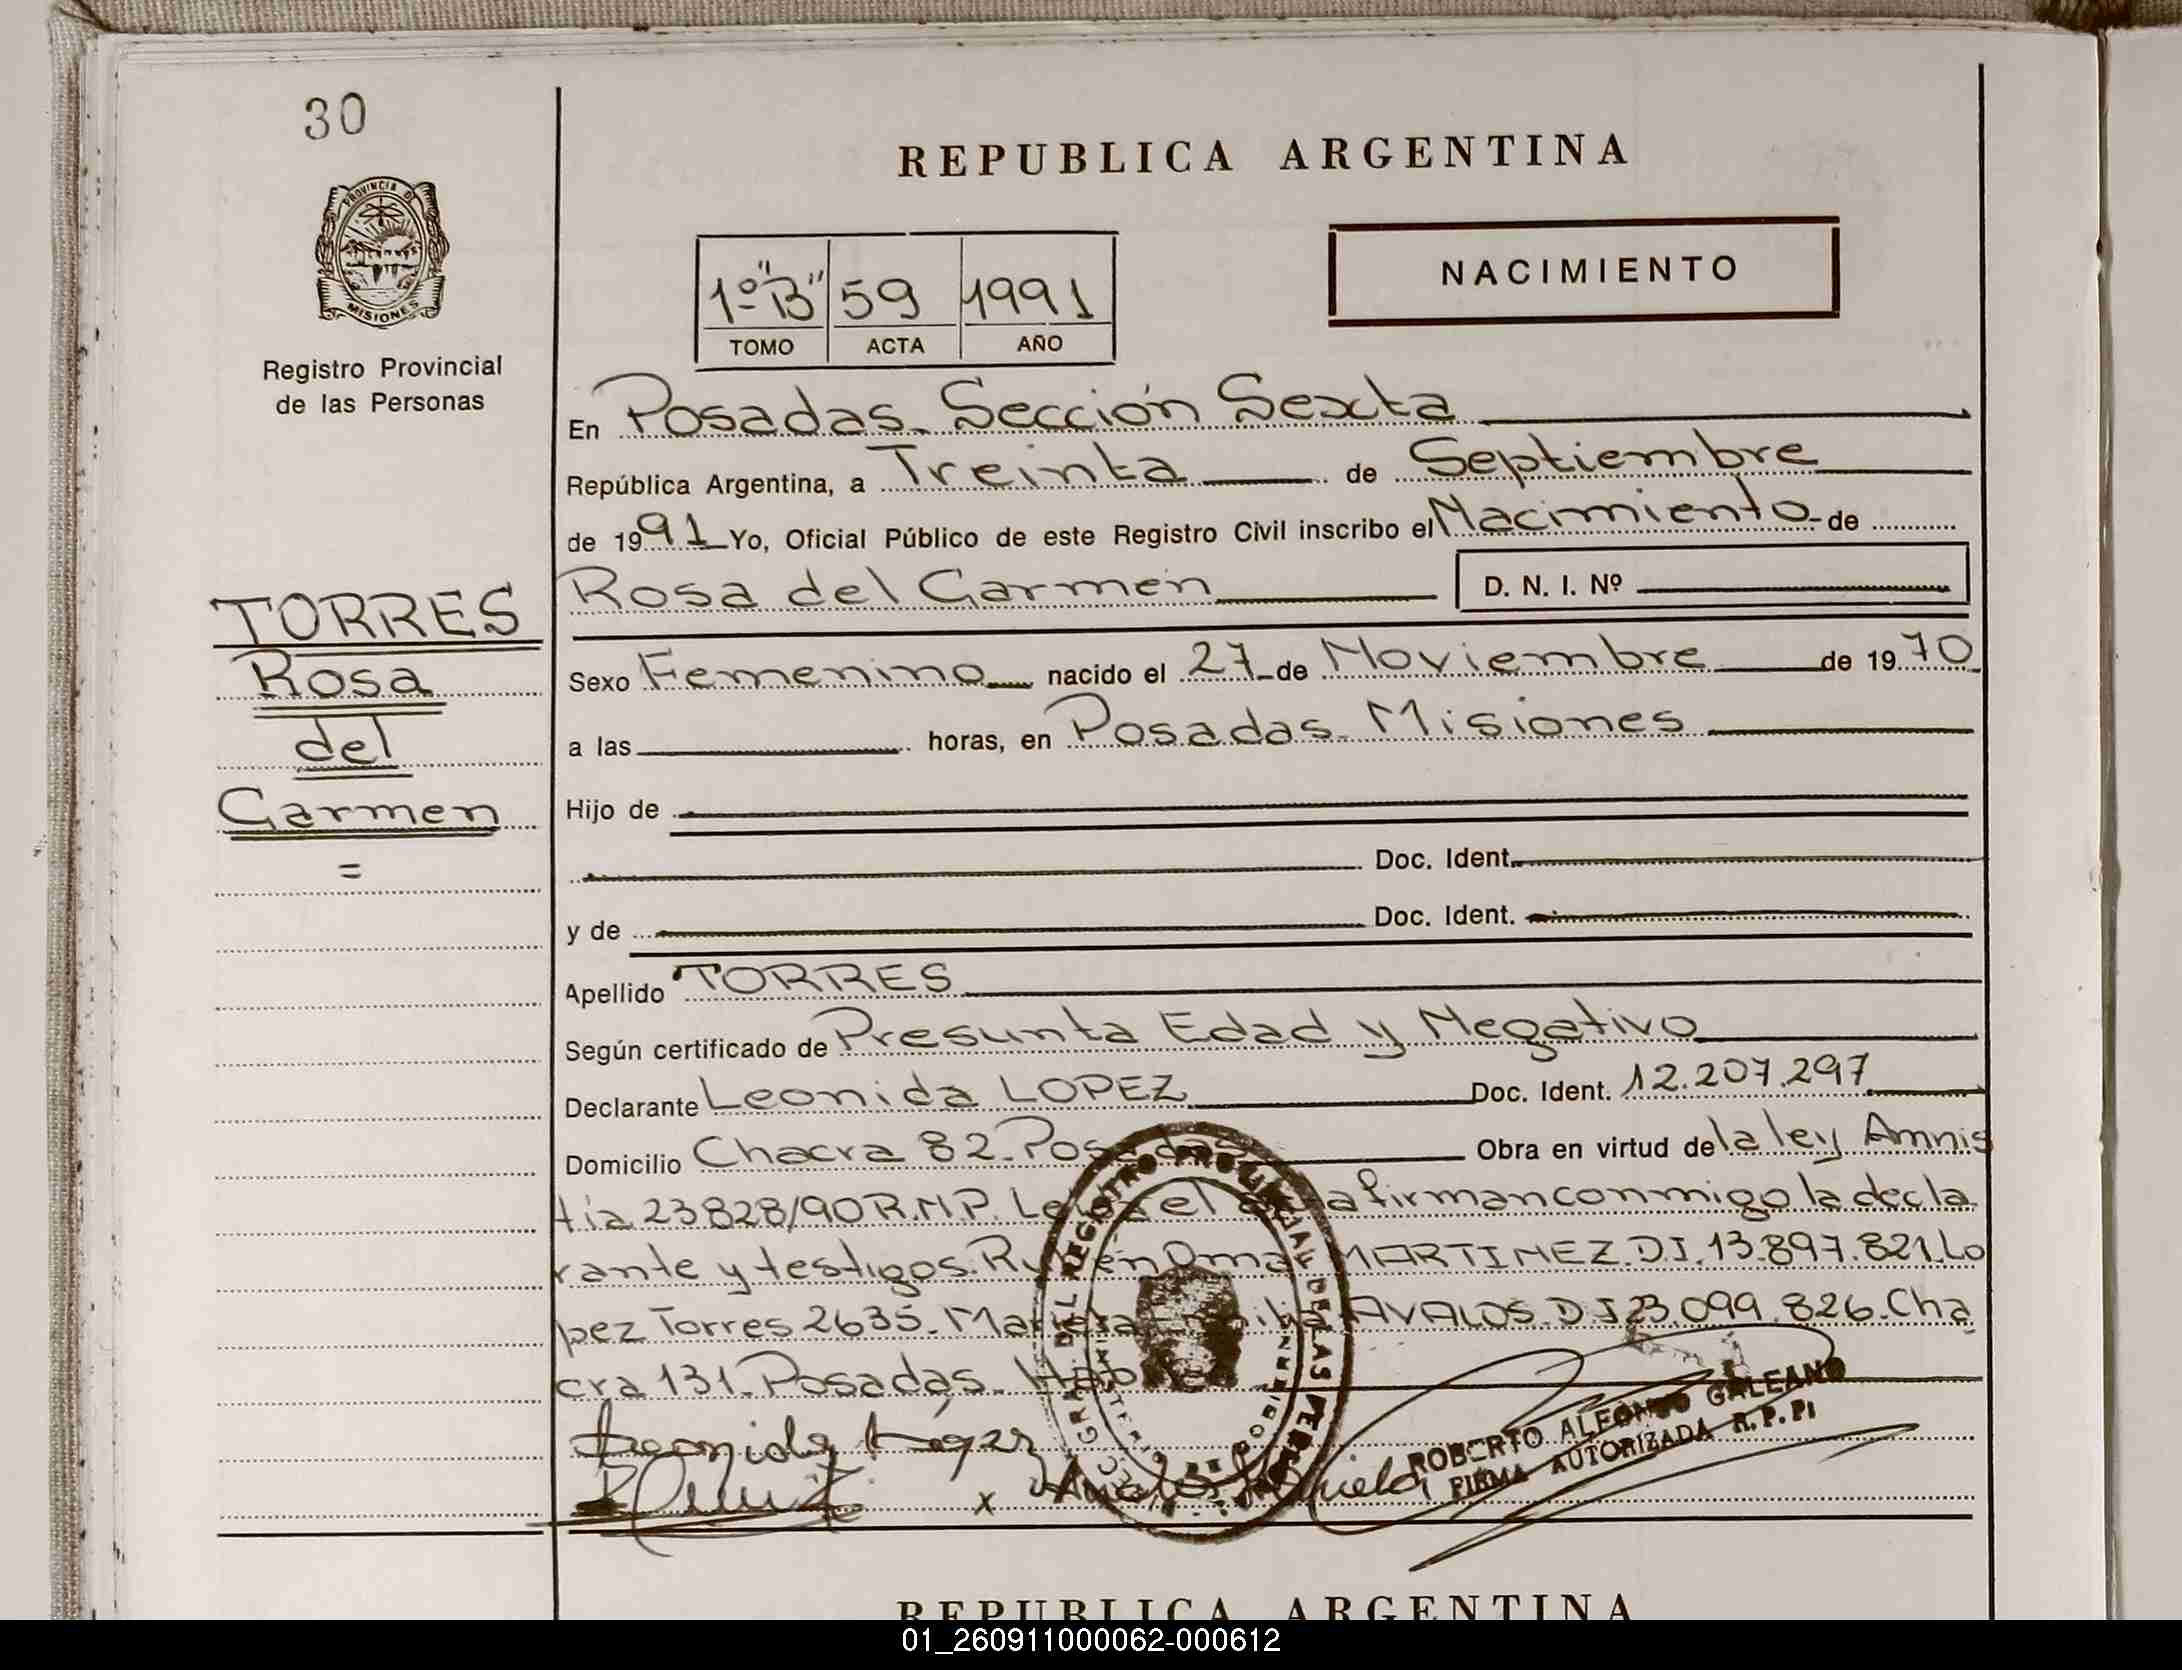 30
REPUBLICA ARGENTINA
PROVINCIA D
MISIONES
Registro Provincial
de las Personas
1º "B" 59 1991
TOMO ACTA AÑO
NACIMIENTO
En Posadas. Sección Sexta
República Argentina, a Treinta de Septiembre
de 1991 Yo, Oficial Público de este Registro Civil inscribo el Nacimiento de
Rosa del Carmen D. N. I. Nº
TORRES
Rosa
del
Carmen
=
Sexo Femenino nacido el 27 de Noviembre de 1970
a las horas, en Posadas. Misiones
Hijo de
Doc. Ident.
y de Doc. Ident.
Apellido TORRES
Según certificado de Presunta Edad y Negativo
Declarante Leonida LOPEZ Doc. Ident. 12.207.297
Domicilio Chacra 82. Posadas Obra en virtud de la ley Amnis
tía 23828/90 R.N.P. el firman conmigo la decla
rante y testigos. Rubén Omar MARTINEZ. D.I. 13.897.821. Lo
pez Torres 2635. AVALOS. D I 23.099.826. Cha
cra 131. Posadas.
Leonida Lopez
x Avalos
REGISTRO PROVINCIAL DE LAS PERS
ROBERTO ALFONSO GALEANO
FIRMA AUTORIZADA R. P. P.
REPUBLICA ARGENTINA
01_260911000062-000612